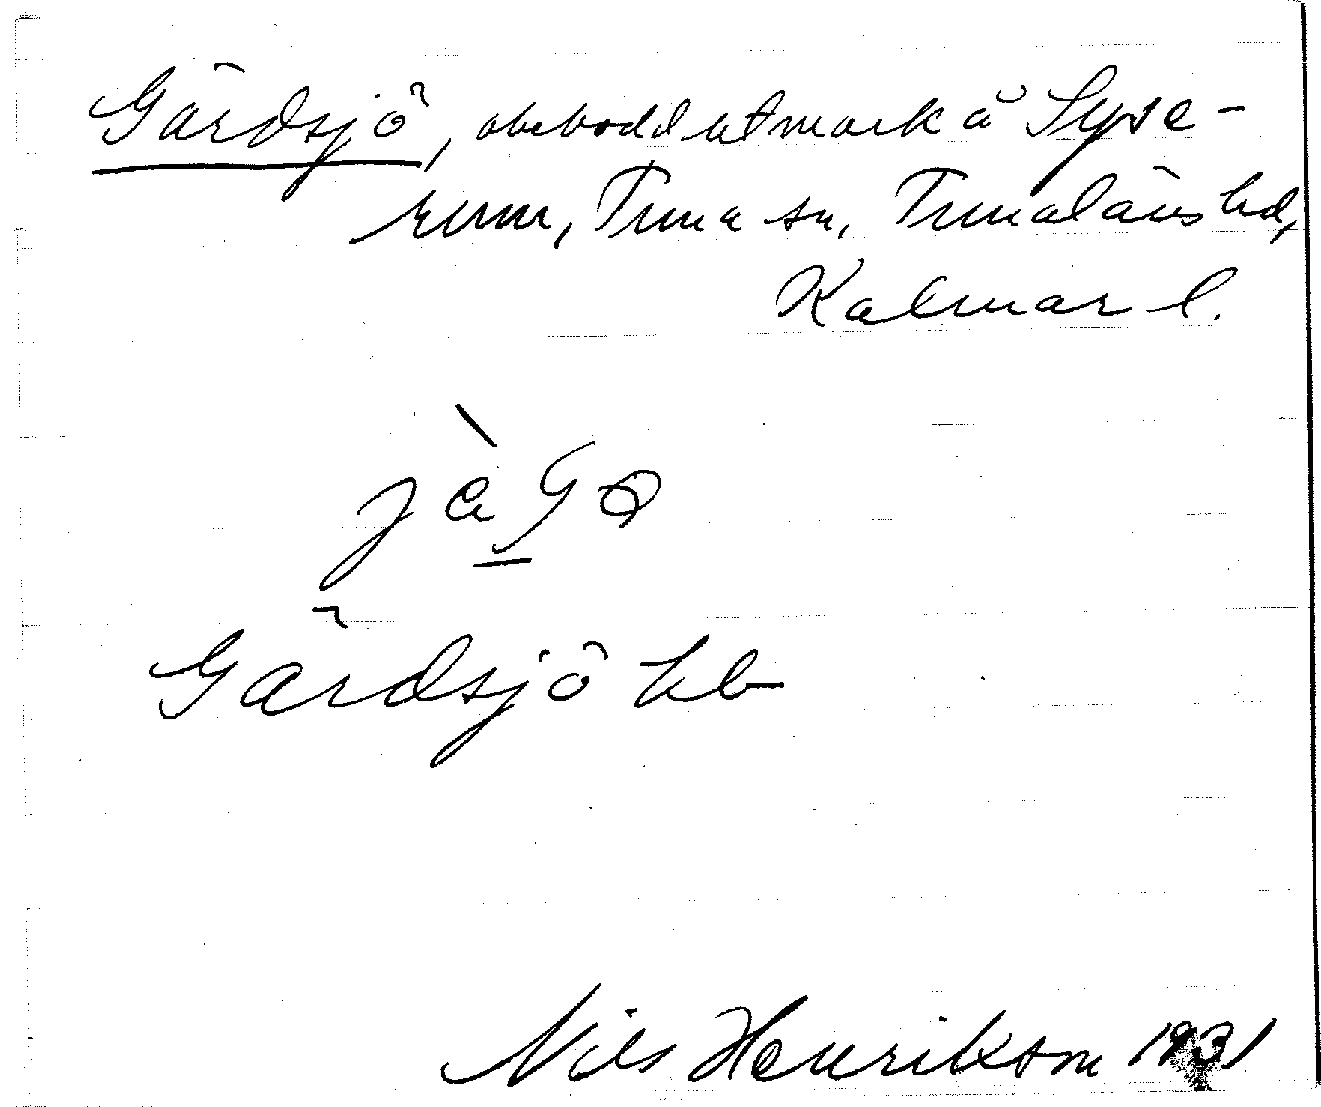 Gärdsjö, obebodd utmark å Syse-
rum, Tuna sn, Tunaläns hd,
Kalmar l.
Gärdsjö hb
Nils Henrikson 1931